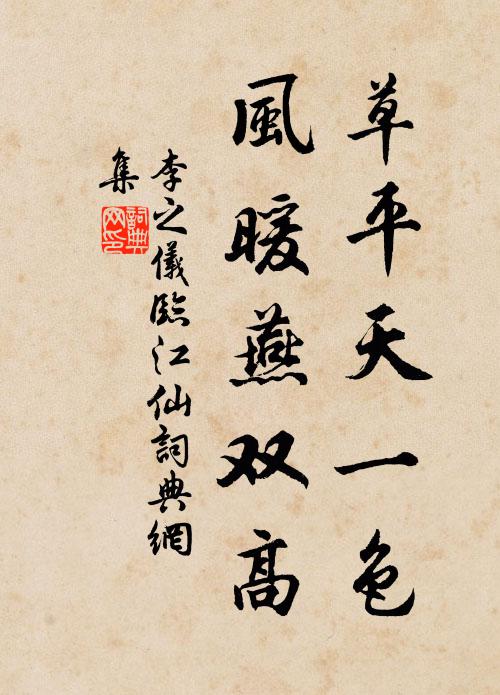 草平天一色
風暖燕双高
李之儀臨江仙詞典網
集
詞典網印